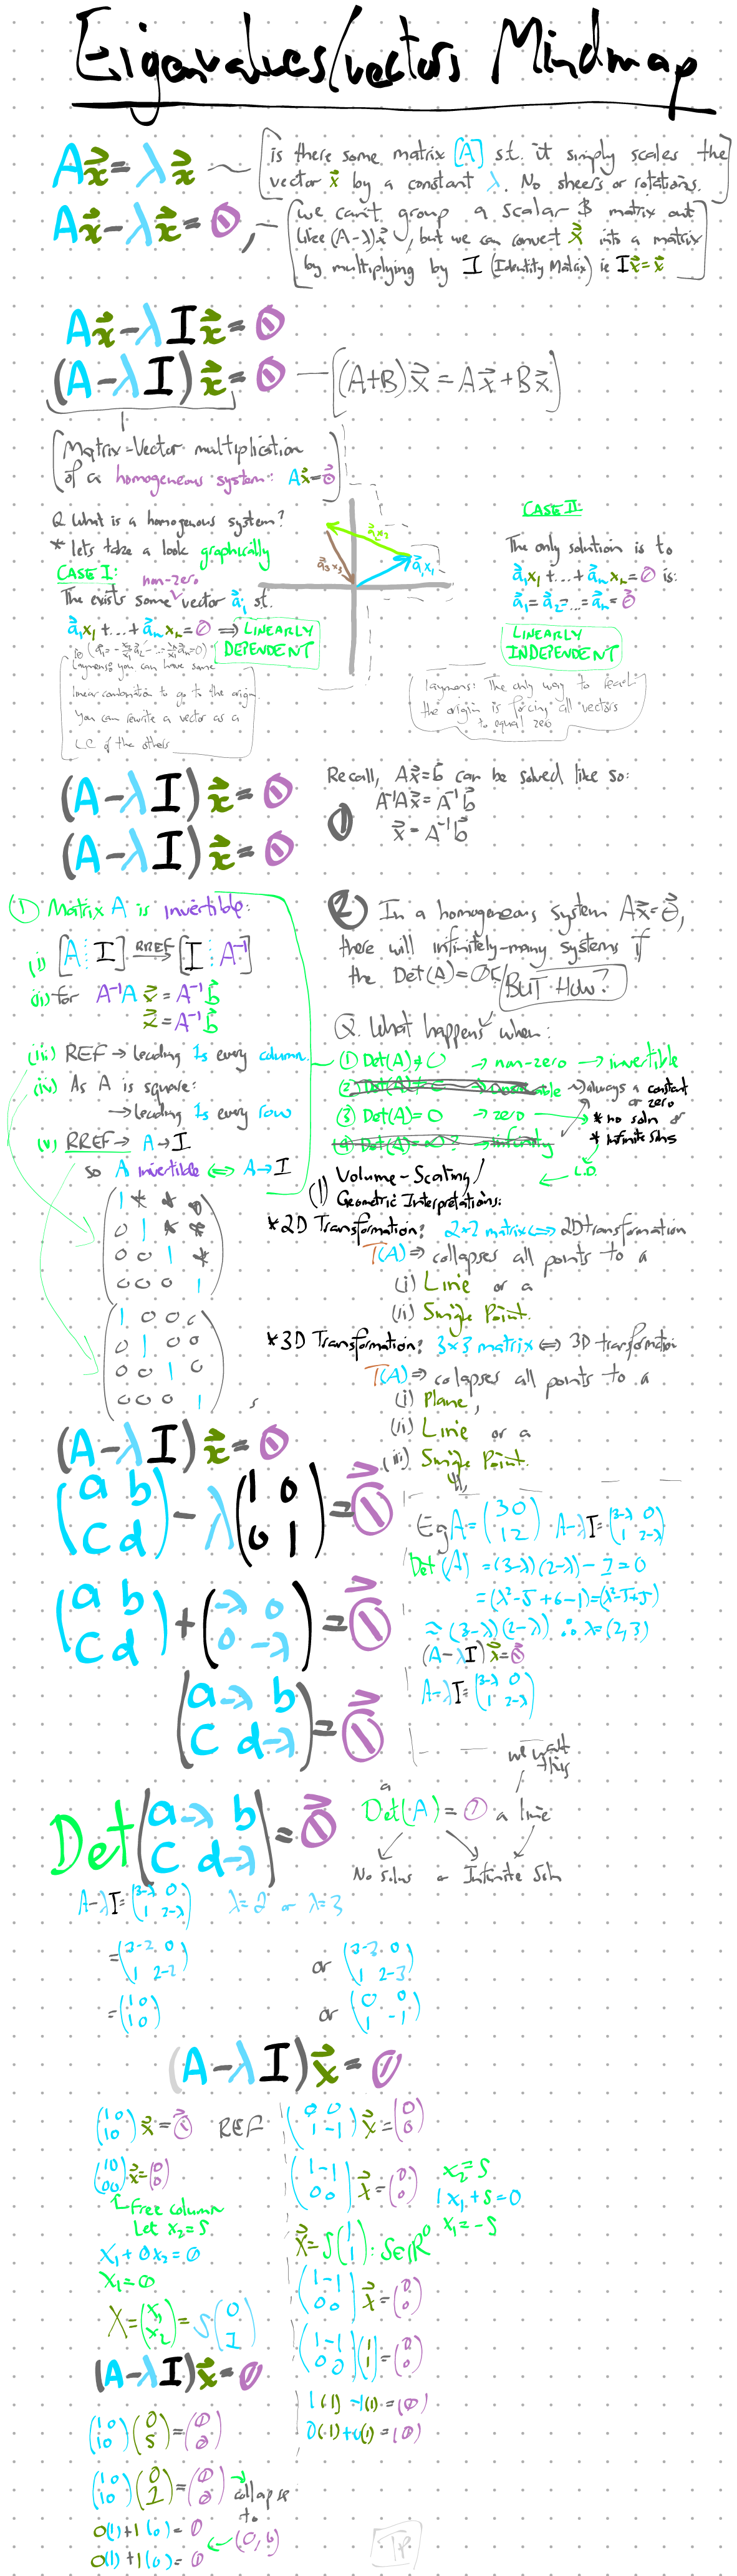 Eigenvalues/vectors Mindmap
Ax⃗ = λx⃗
is there some matrix [A] s.t. it simply scales the
vector x⃗ by a constant λ. No sheers or rotations.
Ax⃗ - λx⃗ = 0,
we can't group a scalar & matrix out
like (A-λ)x⃗, but we can convert x⃗ into a matrix
by multiplying by I (Identity Matrix) ie Ix⃗ = x⃗
Ax⃗ - λIx⃗ = 0
(A-λI)x⃗ = 0
[(A+B)x⃗ = Ax⃗ + Bx⃗]
Matrix-Vector multiplication
of a homogeneous system: Ax⃗ = 0⃗
Q. What is a homogenous system?
* lets take a look graphically
CASE I:
non-zero
The exists some vector a⃗i st.
a⃗1x1 + ... + a⃗nxn = 0 ⇒ LINEARLY
DEPENDENT
Laymens: you can have some
linear combination to go to the origin.
You can rewrite a vector as a
LC of the others
a⃗1x1
a⃗2x2
a⃗3x3
CASE II:
The only solution is to
a⃗1x1 + ... + a⃗nxn = 0 is:
a⃗1 = a⃗2 = ... = a⃗n = 0⃗
LINEARLY
INDEPENDENT
laymens: The only way to reach
the origin is forcing all vectors
to equal zero
(A-λI)x⃗ = 0
(A-λI)x⃗ = 0
Recall, Ax⃗ = b⃗ can be solved like so:
① A⁻¹Ax⃗ = A⁻¹b⃗
x⃗ = A⁻¹b⃗
① Matrix A is invertible:
(i) [A ⋮ I] RREF→ [I ⋮ A⁻¹]
(ii) for A⁻¹Ax⃗ = A⁻¹b⃗
x⃗ = A⁻¹b⃗
(iii) REF → leading 1s every column.
(iv) As A is square:
→ leading 1s every row
(v) RREF → A→I
so A invertible ⇔ A→I
1 * * *
0 1 * *
0 0 1 *
0 0 0 1
1 0 0 0
0 1 0 0
0 0 1 0
0 0 0 1
② In a homogeneous system Ax⃗ = 0⃗,
there will infinitely-many systems if
the Det(A) = 0
BUT HOW?
Q. What happens when:
① Det(A) ≠ 0 → non-zero → invertible
~) always a constant
or zero
③ Det(A) = 0 → zero → * no soln or
* infinite solns
L.D.
(1) Volume-Scaling/
Geometric Interpretations:
*2D Transformation: 2×2 matrix ⇔ 2D transformation
T(A) ⇒ collapses all points to a
(i) Line or a
(ii) Single Point.
*3D Transformation: 3×3 matrix ⇔ 3D transformation
T(A) ⇒ colapses all points to a
(i) Plane,
(ii) Line or a
(iii) Single Point.
(A-λI)x⃗ = 0
(a b; c d) - λ(1 0; 0 1) = 0⃗
(a b; c d) + (-λ 0; 0 -λ) = 0⃗
(a-λ b; c d-λ) = 0⃗
Eg A = (3 0; 1 2) A-λI = (3-λ 0; 1 2-λ)
Det(A) = (3-λ)(2-λ) - 1 = 0
= (λ²-5+6-1) = (λ²-5+5)
≈ (3-λ)(2-λ) ∴ λ = (2,3)
(A-λI)x⃗ = 0
A-λI = (3-λ 0; 1 2-λ)
we want
this
Det(a-λ b; c d-λ) = 0⃗
Det(A) = 0 a line
No solns or Infinite Soln
A-λI = (3-λ 0; 1 2-λ) λ=2 or λ=3
= (3-2 0; 1 2-2) or (3-3 0; 1 2-3)
= (1 0; 1 0) or (0 0; 1 -1)
(A-λI)x⃗ = 0
(1 0; 1 0) x⃗ = 0⃗ REF
(1 0; 0 0) x⃗ = (0; 0)
Free column
Let x2 = s
x1 + 0x2 = 0
x1 = 0
X = (x1; x2) = s(0; 1)
(0 0; 1 -1) x⃗ = (0; 0)
(1 -1; 0 0) x⃗ = (0; 0)
x2 = s
1x1 + s = 0
x1 = -s
x⃗ = s(1; 1) : s∈ℝ
(1 -1; 0 0) x⃗ = (0; 0)
(1 -1; 0 0)(1; 1) = (0; 0)
1(1) -1(1) = (0)
0(1) + 0(1) = (0)
(A-λI)x⃗ = 0
(1 0; 1 0)(0; s) = (0; 0)
(1 0; 1 0)(0; 1) = (0; 0)
→ collapse
to
(0,0)
0(1) + 1(0) = 0
0(1) + 1(0) = 0